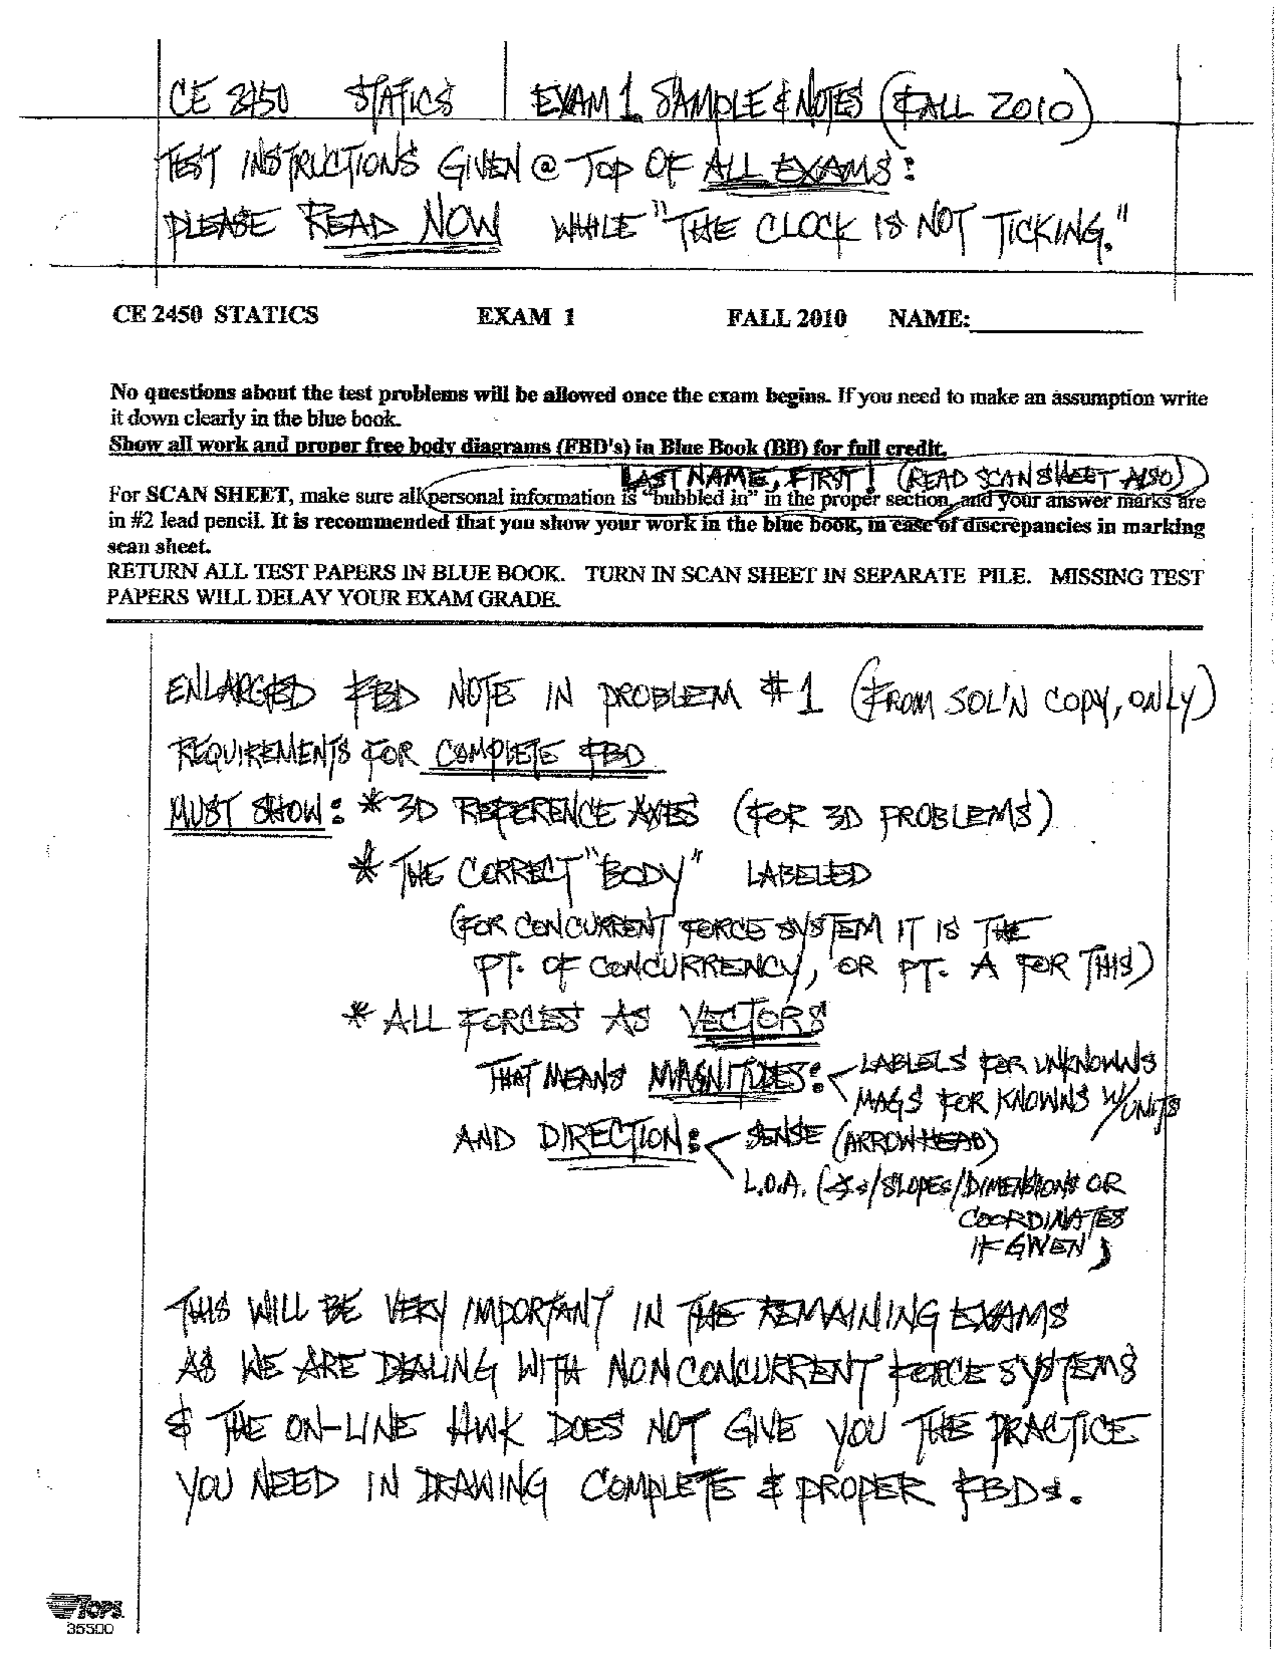 CE 2450 STATICS EXAM 1 SAMPLE & NOTES (FALL 2010)
TEST INSTRUCTIONS GIVEN @ TOP OF ALL EXAMS:
PLEASE READ NOW WHILE "THE CLOCK IS NOT TICKING."
CE 2450 STATICS EXAM 1 FALL 2010 NAME:
No questions about the test problems will be allowed once the exam begins. If you need to make an assumption write
it down clearly in the blue book.
Show all work and proper free body diagrams (FBD's) in Blue Book (BB) for full credit.
LAST NAME, FIRST! (READ SCAN SHEET ALSO)
For SCAN SHEET, make sure all personal information is "bubbled in" in the proper section, and your answer marks are
in #2 lead pencil. It is recommended that you show your work in the blue book, in case of discrepancies in marking
scan sheet.
RETURN ALL TEST PAPERS IN BLUE BOOK. TURN IN SCAN SHEET IN SEPARATE PILE. MISSING TEST
PAPERS WILL DELAY YOUR EXAM GRADE.
ENLARGED FBD NOTE IN PROBLEM #1 (FROM SOL'N COPY, ONLY)
REQUIREMENTS FOR COMPLETE FBD
MUST SHOW: * 3D REFERENCE AXES (FOR 3D PROBLEMS)
* THE CORRECT "BODY" LABELED
(FOR CONCURRENT FORCE SYSTEM IT IS THE
PT. OF CONCURRENCY, OR PT. A FOR THIS)
* ALL FORCES AS VECTORS
THAT MEANS MAGNITUDES: LABLELS FOR UNKNOWNS
MAGS FOR KNOWNS W/UNITS
AND DIRECTION: SENSE (ARROWHEAD)
L.O.A. (∡s/SLOPES/DIMENSIONS OR
COORDINATES
IF GIVEN)
THIS WILL BE VERY IMPORTANT IN THE REMAINING EXAMS
AS WE ARE DEALING WITH NONCONCURRENT FORCE SYSTEMS
& THE ON-LINE HWK DOES NOT GIVE YOU THE PRACTICE
YOU NEED IN DRAWING COMPLETE & PROPER FBDs.
TOPS
35500